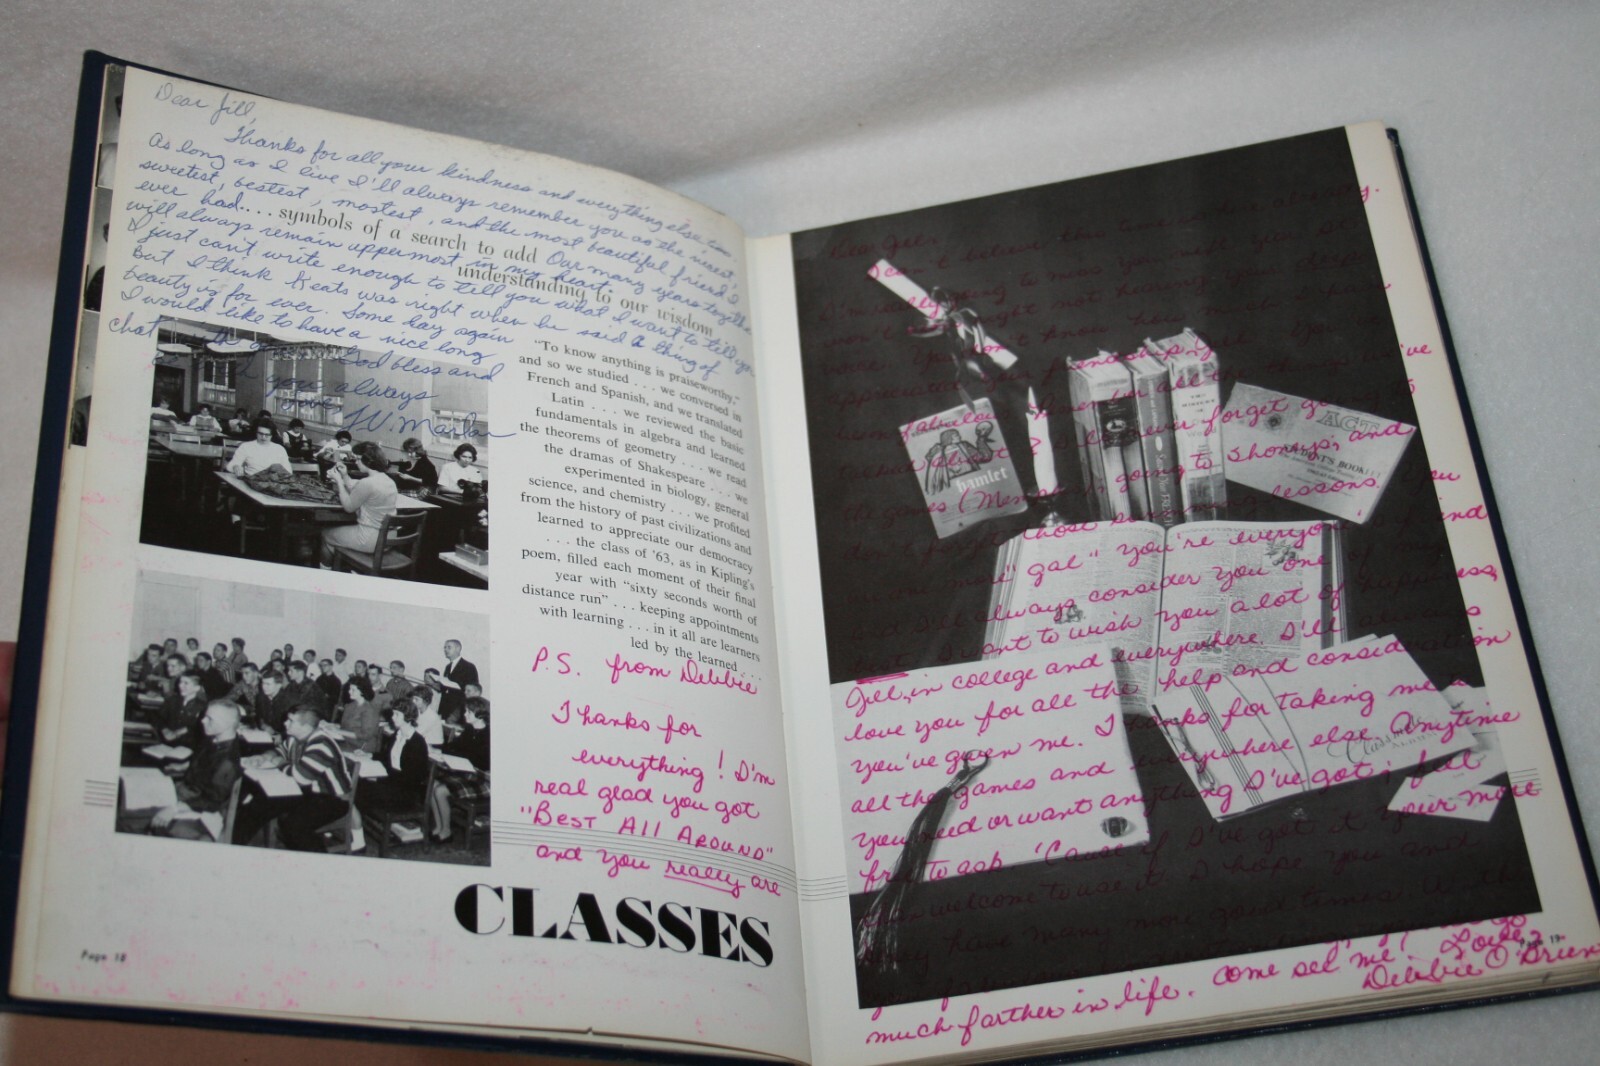 Dear Jill,
Thanks for all your kindness and everything else too.
As long as I live I'll always remember you as the nicest,
sweetest, bestest, mostest, and the most beautiful friend I
ever had. Our many years together
will always remain uppermost in my heart.
I just can't write enough to tell you what I want to tell you
But I think Keats was right when he said a thing of
beauty is for ever. Some day again
I would like to have a nice long
chat God bless and
you always
Love,
... symbols of a search to add
understanding to our wisdom
"To know anything is praiseworthy,"
and so we studied . . . we conversed in
French and Spanish, and we translated
Latin . . . we reviewed the basic
fundamentals in algebra and learned
the theorems of geometry . . . we read
the dramas of Shakespeare . . . we
experimented in biology, general
science, and chemistry . . . we profited
from the history of past civilizations and
learned to appreciate our democracy
. . . the class of '63, as in Kipling's
poem, filled each moment of their final
year with "sixty seconds worth of
distance run" . . . keeping appointments
with learning . . . in it all are learners
led by the learned . . .
P.S. from Debbie
Thanks for
everything! I'm
real glad you got
"BEST ALL AROUND"
and you really are
CLASSES
Page 18
Dear Jill,
I can't believe this
I'm really going to miss you next year. It
won't be right not hearing your
voice. You don't know how much I have
appreciated your friendship, Jill. You
been fabulous. Remember all the things we've
? I'll never forget going to
the games (Memphis), going to Shoney's, and
don't forget those swimming lessons. You
"gal" you're everyone's friend
and I'll always consider you one of my
best. I want to wish you a lot of happiness,
Jill, in college and everywhere. I'll always
love you for all the help and consideration
you've given me. Thanks for taking me to
all the games and everywhere else. Anytime
you need or want anything I've got, feel
free to ask 'Cause if I've got it your more
than welcome to use it. I hope you and
have many more good times.
come see me!
much farther in life.
Love,
Debbie O'Brien
hamlet
ACT
STUDENT'S BOOK
Classmates
Page 19